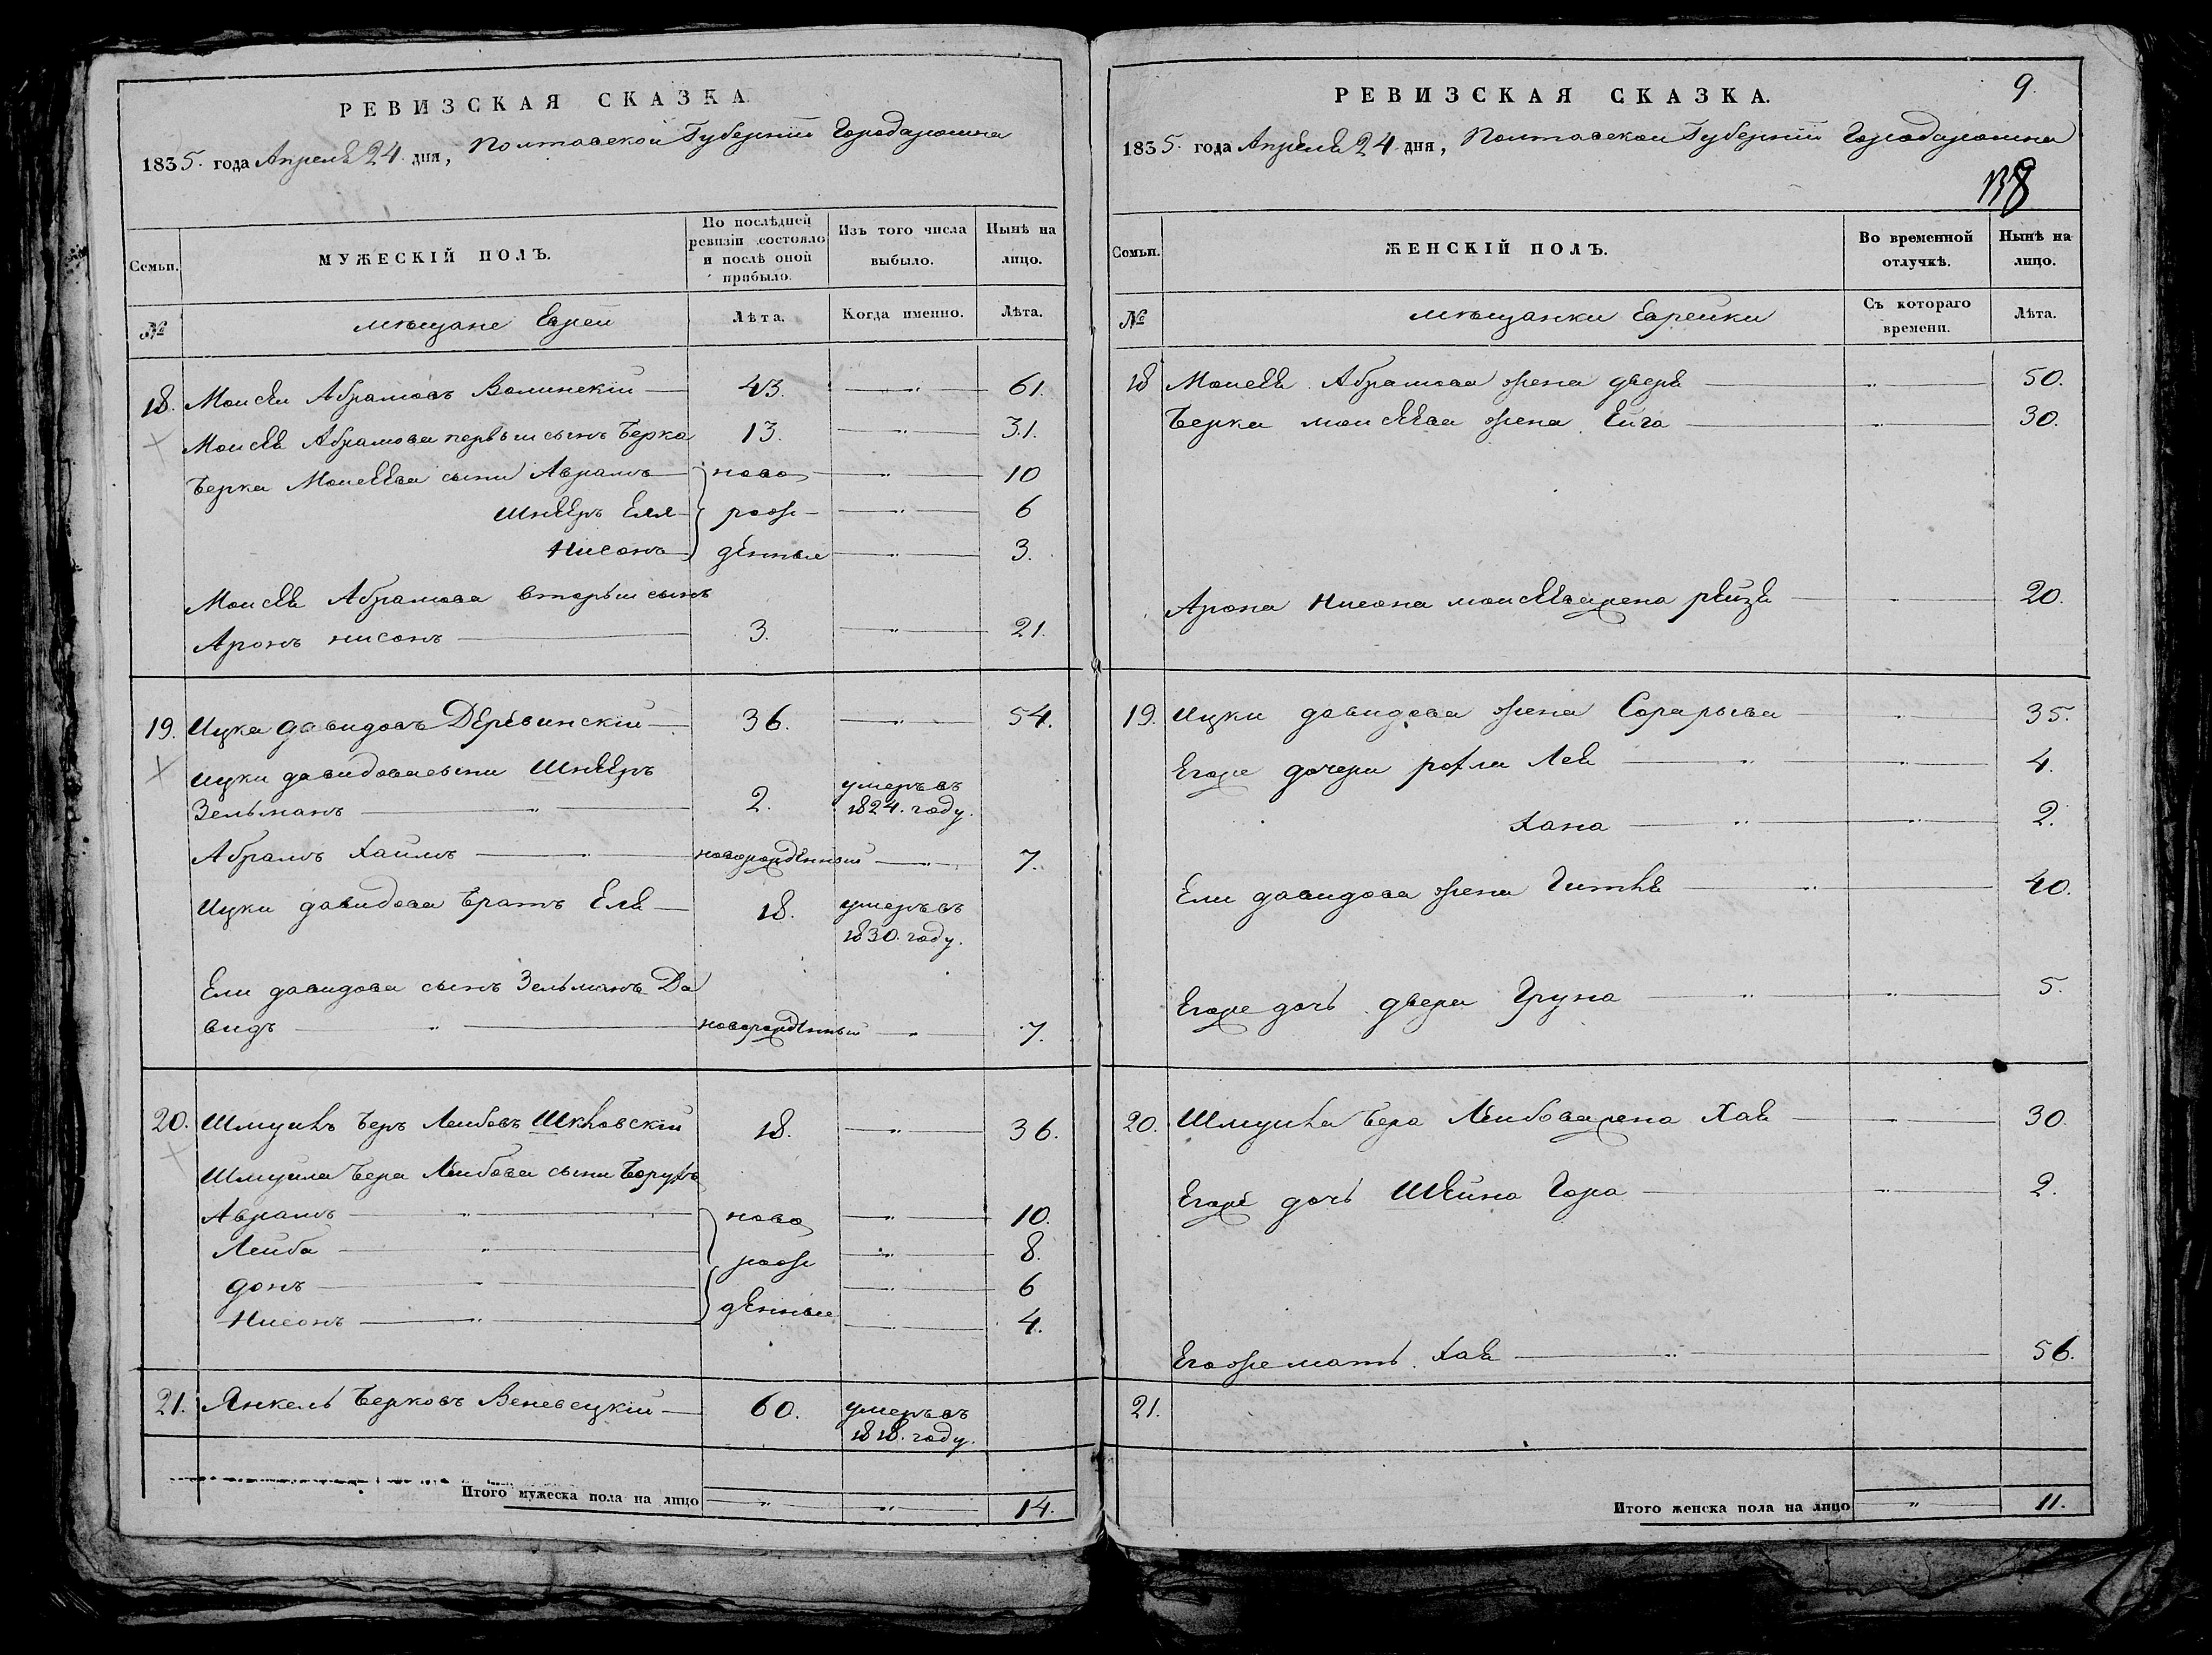 РЕВИЗСКАЯ СКАЗКА.
1835. года Апреля 24 дня, Полтавской Губернии Города
Семьи.
МУЖЕСКІЙ ПОЛЪ.
По послѣдней ревизіи состояло и послѣ оной прибыло.
Изъ того числа выбыло.
Нынѣ на лицо.
№
мѣщане Евреи
Лѣта.
Когда именно.
Лѣта.
18. Моисей Абрамовъ Волинскій 43. — " — 61.
Моисея Абрамова первый сынъ Берка 13. — " — 31.
Берка Моисеева сыни Аврамъ ново — " — 10
Шнееръ Еля рож — " — 6
Нисонъ денные — " — 3.
Моисея Абрамова вторый сынъ
Аронъ нисонъ 3. — " — 21.
19. Ицка давидовъ Деревинскій 36. — " — 54.
Ицки давидова сыни Шнееръ
Зельманъ — " — 2. умеръ въ 1824. году.
Абрамъ Хаимъ — " — новорожденный — " — 7.
Ицки давидова братъ Еля 18. умеръ въ
1830. году.
Ели давидова сынъ Зельманъ Да
видъ — " — новорожденный — " — 7.
20. Шмуилъ Беръ Лейбовъ 18. — " — 36.
Шмуила Бера Лейбова сыни Борухъ
Аврамъ — " — ново — " — 10.
Лейба — " — рож — " — 8.
донъ — " — 6
Нисонъ — " — денные — " — 4.
21. Янкель Берковъ Веневецкій 60. умеръ въ
1818. году.
Итого мужеска пола на лицо — " — " — 14.
РЕВИЗСКАЯ СКАЗКА.
9.
1835. года Апреля 24 дня, Полтавской Губернии Города
Семьи.
ЖЕНСКІЙ ПОЛЪ.
Во временной отлучкѣ.
Нынѣ на лицо.
№
мѣщанки Еврейки
Съ котораго времени.
Лѣта.
18 Моисея Абрамова жена двера — " — 50.
Берка моисеева жена Ейга — " — 30.
Арона Нисона моисеева жена рейзя — " — 20.
19. Ицки давидова жена Сорарыва — " — 35.
Егоже дочери рохля Лея — " — " — 4.
Хана — " — " — 2.
Ели давидова жена Гитля — " — 40.
Егоже дочь двера Груна — " — " — 5.
20. Шмуила Бера Лейбова жена Хая — " — 30.
Егоже дочь Шейна Гора — " — 2.
Егоже мать Хая — " — 56.
21.
Итого женска пола на лицо — " — 11.